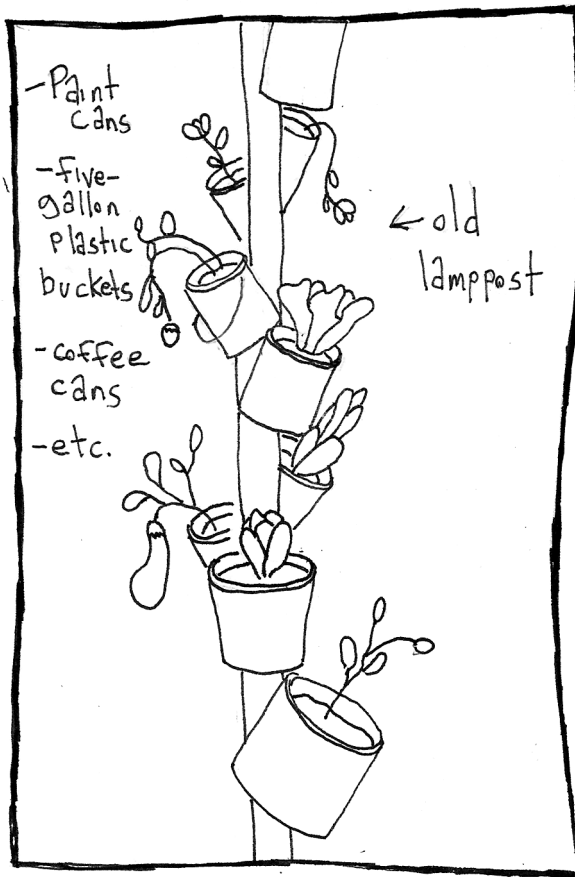 -Paint
cans
-five-
gallon
plastic
buckets
-coffee
cans
-etc.
← old
lamppost